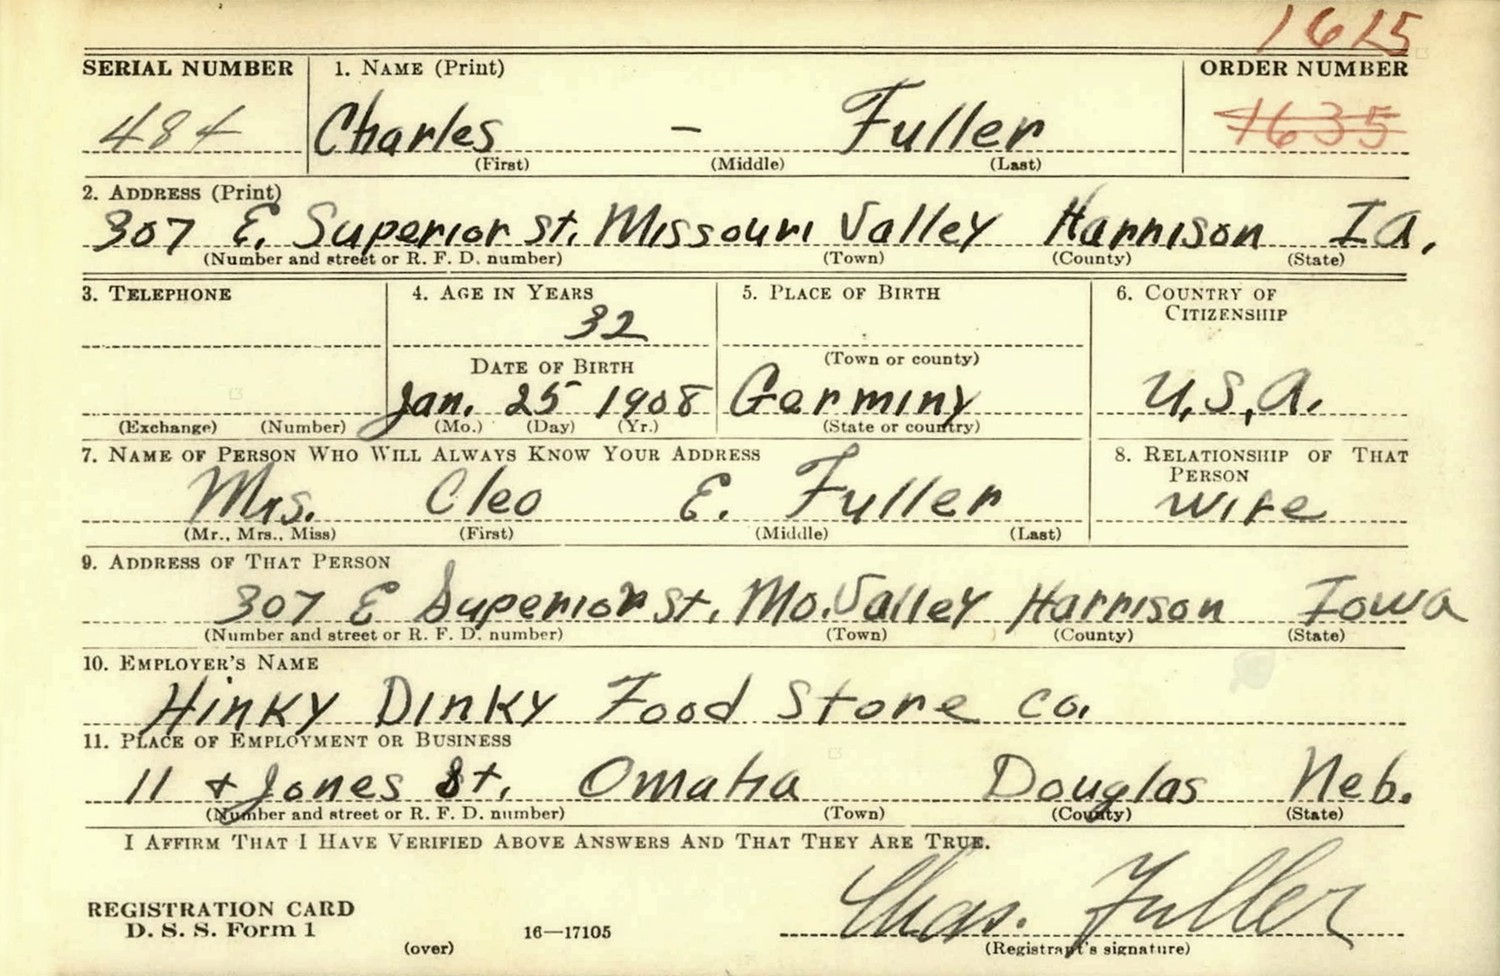 1615
SERIAL NUMBER 1. NAME (Print) ORDER NUMBER
484 Charles - Fuller 1635
(First) (Middle) (Last)
2. ADDRESS (Print)
307 E. Superior St. Missouri Valley Harrison Ia.
(Number and street or R. F. D. number) (Town) (County) (State)
3. TELEPHONE 4. AGE IN YEARS 5. PLACE OF BIRTH 6. COUNTRY OF
CITIZENSHIP
32
(Town or county)
DATE OF BIRTH
Jan. 25 1908 Germiny U.S.A.
(Exchange) (Number) (Mo.) (Day) (Yr.) (State or country)
7. NAME OF PERSON WHO WILL ALWAYS KNOW YOUR ADDRESS 8. RELATIONSHIP OF THAT
PERSON
Mrs. Cleo E. Fuller wife
(Mr., Mrs., Miss) (First) (Middle) (Last)
9. ADDRESS OF THAT PERSON
307 E Superior St. Mo. Valley Harrison Iowa
(Number and street or R. F. D. number) (Town) (County) (State)
10. EMPLOYER'S NAME
Hinky Dinky Food Store Co.
11. PLACE OF EMPLOYMENT OR BUSINESS
11 + Jones St. Omaha Douglas Neb.
(Number and street or R. F. D. number) (Town) (County) (State)
I AFFIRM THAT I HAVE VERIFIED ABOVE ANSWERS AND THAT THEY ARE TRUE.
REGISTRATION CARD
D. S. S. Form 1
Chas. Fuller
(over) 16—17105 (Registrant's signature)